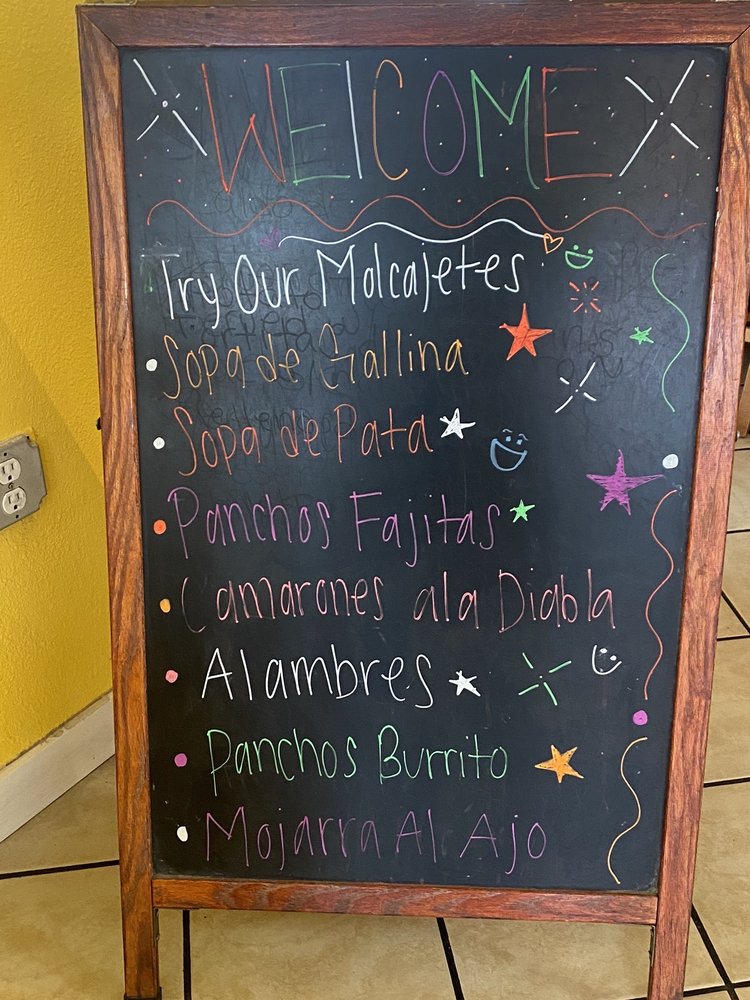 WELCOME
Try Our Molcajetes
Sopa de Gallina
Sopa de Pata
Panchos Fajitas
Camarones ala Diabla
Alambres
Panchos Burrito
Mojarra Al Ajo